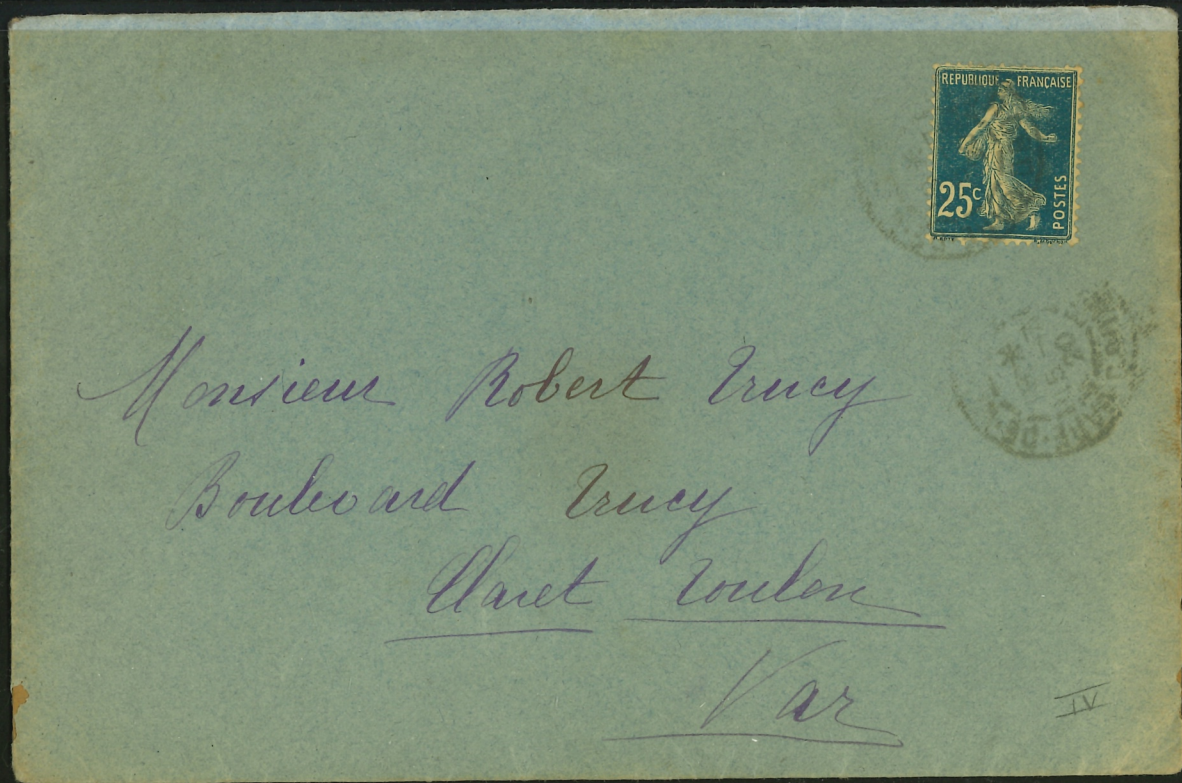 REPUBLIQUE FRANÇAISE
25c
POSTES
Monsieur Robert Trucy
Boulevard Trucy
Claret Toulon
Var
IV